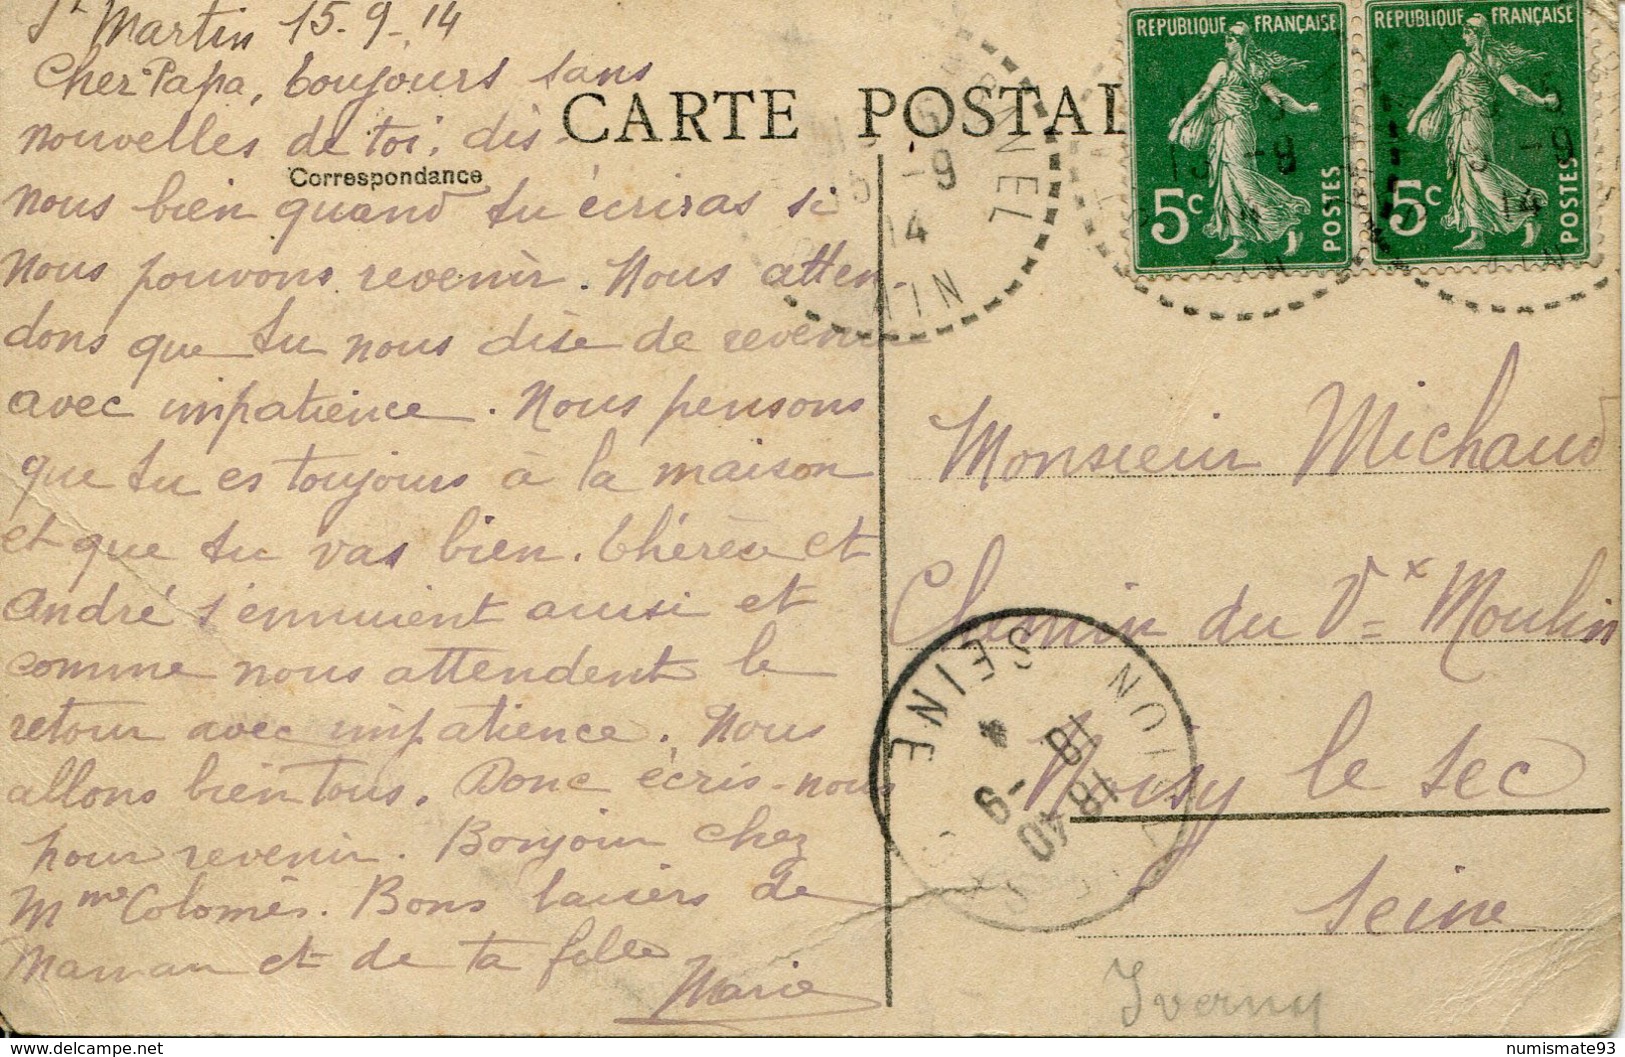 St Martin 15-9-14
Cher Papa, toujours sans
nouvelles de toi, dis-
nous bien quand tu écriras si
nous pouvons revenir. Nous atten-
dons que tu nous dise de revenir
avec impatience. Nous pensons
que tu es toujours à la maison
et que tu vas bien. Thérèse et
André s'ennuient aussi et
comme nous attendent le
retour avec impatience. Nous
allons bien tous. Donc écris-nous
pour revenir. Bonjour chez
Mme Colomès. Bons baisers de
Maman et de ta fille
Marie
CARTE POSTAL
Correspondance
REPUBLIQUE FRANÇAISE
5c
POSTES
REPUBLIQUE FRANÇAISE
5c
POSTES
15 -9
14
AIN
Monsieur Michaud
Chemin du Vx Moulin
Noisy le Sec
Seine
NOISY
SEINE
18 40
18 -9
Yverny
www.delcampe.net
numismate93